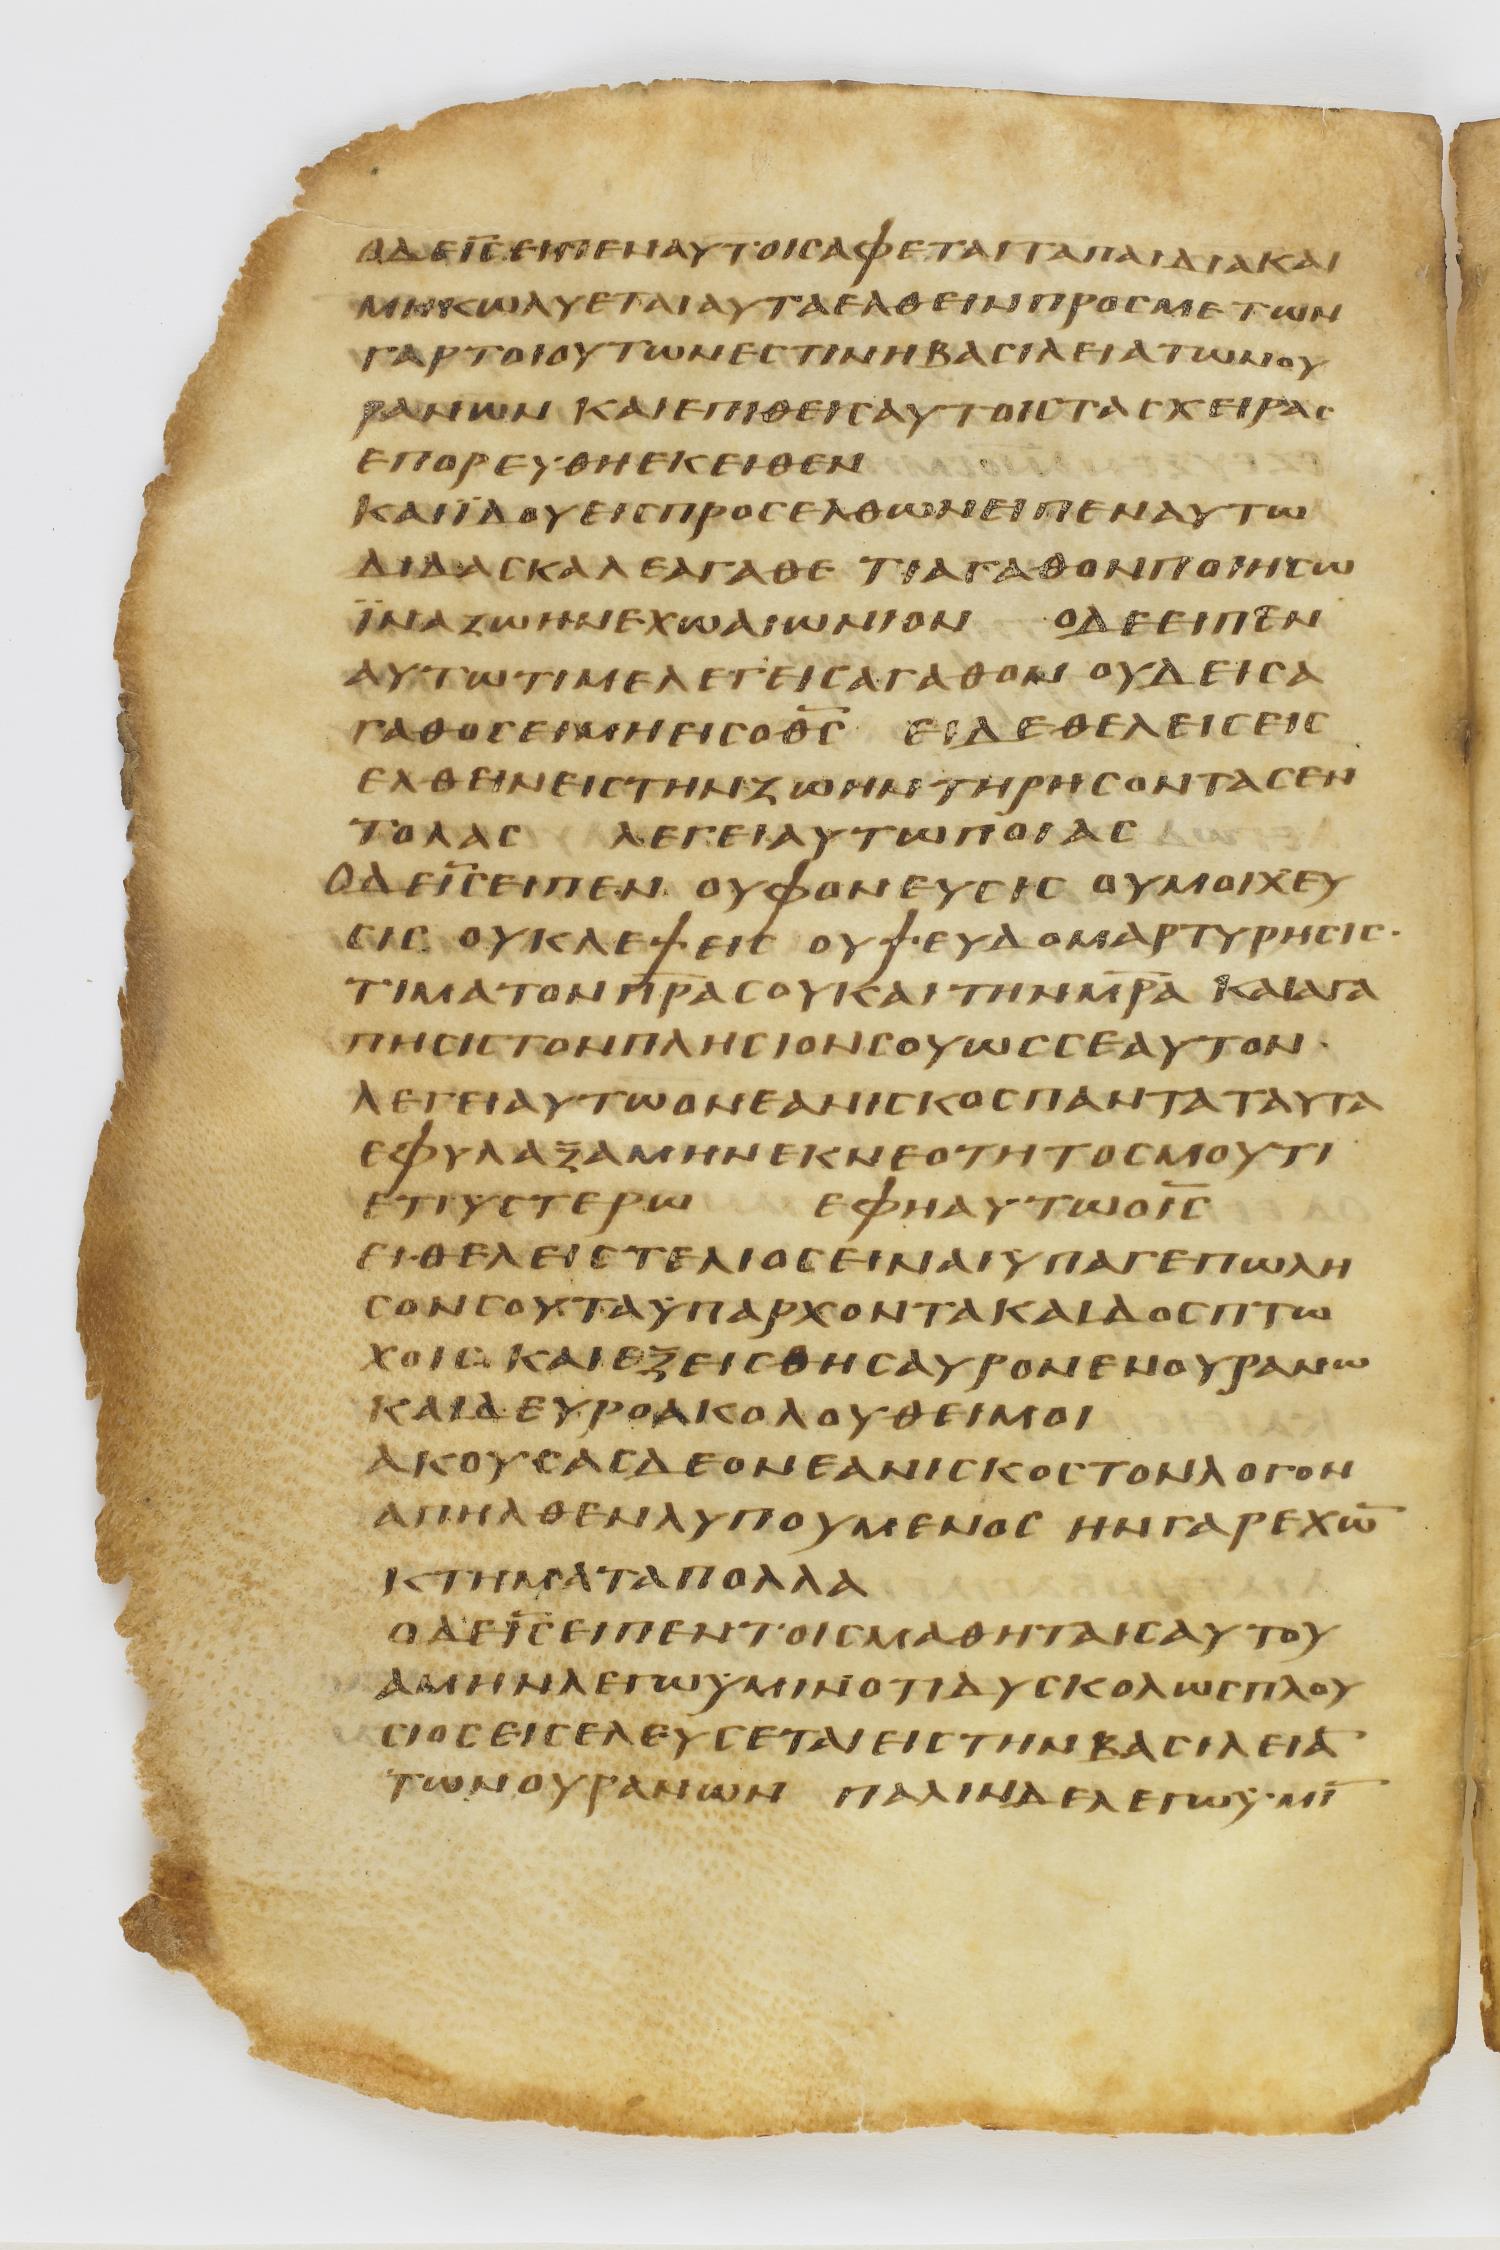 ΟΔΕΙ̅Σ̅ΕΙΠΕΝΑΥΤΟΙΣΑΦΕΤΑΙΤΑΠΑΙΔΙΑΚΑΙ
ΜΗΚΩΛΥΕΤΑΙΑΥΤΑΕΛΘΕΙΝΠΡΟΣΜΕΤΩΝ
ΓΑΡΤΟΙΟΥΤΩΝΕΣΤΙΝΗΒΑΣΙΛΕΙΑΤΩΝΟΥ
ΡΑΝΩΝ ΚΑΙΕΠΙΘΕΙΣΑΥΤΟΙΣΤΑΣΧΕΙΡΑΣ
ΕΠΟΡΕΥΘΗΕΚΕΙΘΕΝ
ΚΑΙΪΔΟΥΕΙΣΠΡΟΣΕΛΘΩΝΕΙΠΕΝΑΥΤΩ
ΔΙΔΑΣΚΑΛΕΑΓΑΘΕ ΤΙΑΓΑΘΟΝΠΟΙΗΣΩ
ΪΝΑΖΩΗΝΕΧΩΑΙΩΝΙΟΝ ΟΔΕΕΙΠΕΝ
ΑΥΤΩΤΙΜΕΛΕΓΕΙΣΑΓΑΘΟΝ ΟΥΔΕΙΣΑ
ΓΑΘΟΣΕΙΜΗΕΙΣΟΘ̅Σ̅ ΕΙΔΕΘΕΛΕΙΣΕΙΣ
ΕΛΘΕΙΝΕΙΣΤΗΝΖΩΗΝΤΗΡΗΣΟΝΤΑΣΕΝ
ΤΟΛΑΣ ΛΕΓΕΙΑΥΤΩΠΟΙΑΣ
ΟΔΕΙ̅Σ̅ΕΙΠΕΝ ΟΥΦΟΝΕΥΣΙΣ ΟΥΜΟΙΧΕΥ
ΣΙΣ ΟΥΚΛΕΨΕΙΣ ΟΥΨΕΥΔΟΜΑΡΤΥΡΗΣΙΣ·
ΤΙΜΑΤΟΝΠ̅Ρ̅Α̅ΣΟΥΚΑΙΤΗΝΜ̅Ρ̅Α̅ ΚΑΙΑΓΑ
ΠΗΣΙΣΤΟΝΠΛΗΣΙΟΝΣΟΥΩΣΣΕΑΥΤΟΝ·
ΛΕΓΕΙΑΥΤΩΟΝΕΑΝΙΣΚΟΣΠΑΝΤΑΤΑΥΤΑ
ΕΦΥΛΑΞΑΜΗΝΕΚΝΕΟΤΗΤΟΣΜΟΥΤΙ
ΕΤΙΥΣΤΕΡΩ ΕΦΗΑΥΤΩΟΙ̅Σ̅
ΕΙΘΕΛΕΙΣΤΕΛΙΟΣΕΙΝΑΙΫΠΑΓΕΠΩΛΗ
ΣΟΝΣΟΥΤΑΫΠΑΡΧΟΝΤΑΚΑΙΔΟΣΠΤΩ
ΧΟΙΣ ΚΑΙΕΞΕΙΣΘΗΣΑΥΡΟΝΕΝΟΥΡΑΝΩ
ΚΑΙΔΕΥΡΟΑΚΟΛΟΥΘΕΙΜΟΙ
ΑΚΟΥΣΑΣΔΕΟΝΕΑΝΙΣΚΟΣΤΟΝΛΟΓΟΝ
ΑΠΗΛΘΕΝΛΥΠΟΥΜΕΝΟΣ ΗΝΓΑΡΕΧΩ̅
ΚΤΗΜΑΤΑΠΟΛΛΑ
ΟΔΕΙ̅Σ̅ΕΙΠΕΝΤΟΙΣΜΑΘΗΤΑΙΣΑΥΤΟΥ
ΑΜΗΝΛΕΓΩΫΜΙΝΟΤΙΔΥΣΚΟΛΩΣΠΛΟΥ
ΣΙΟΣΕΙΣΕΛΕΥΣΕΤΑΙΕΙΣΤΗΝΒΑΣΙΛΕΙΑ̅
ΤΩΝΟΥΡΑΝΩΝ ΠΑΛΙΝΔΕΛΕΓΩΫΜΙ̅